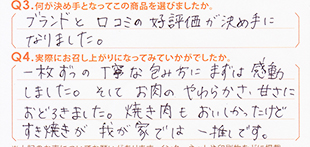 Q3.何が決め手となってこの商品を選びましたか。
ブランドと口コミの好評価が決め手に
なりました。
Q4.実際にお召し上がりになってみていかがでしたか。
一枚ずつの丁寧な包み方にまずは感動
しました。そしてお肉のやわらかさ、甘さに
おどろきました。焼き肉もおいしかったけど
すき焼きが我が家では一推しです。